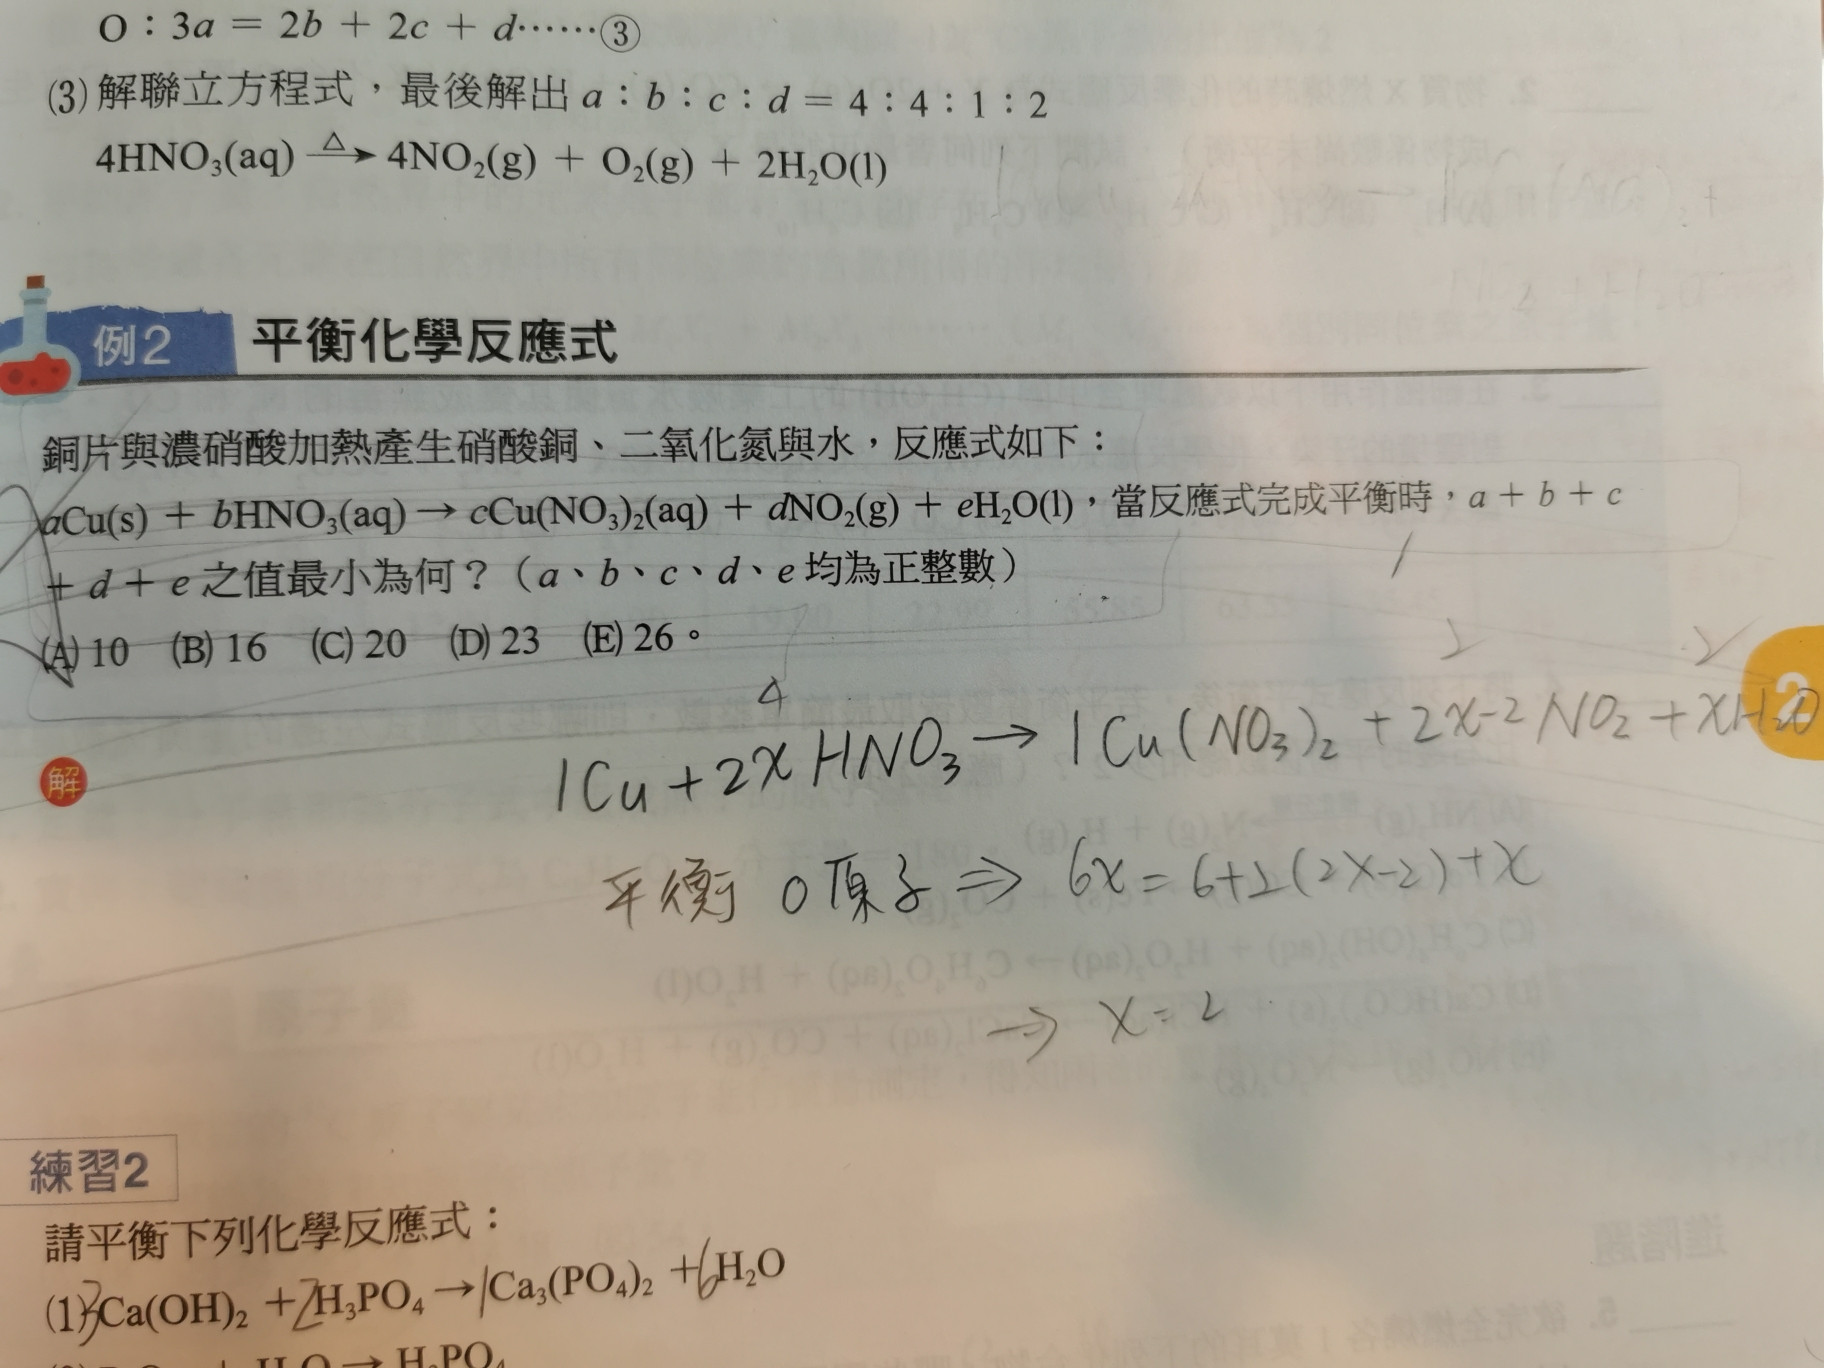 O：3a = 2b + 2c + d……③
(3)解聯立方程式，最後解出 a：b：c：d = 4：4：1：2
4HNO₃(aq) △→ 4NO₂(g) + O₂(g) + 2H₂O(l)
例2 平衡化學反應式
銅片與濃硝酸加熱產生硝酸銅、二氧化氮與水，反應式如下：
aCu(s) + bHNO₃(aq) → cCu(NO₃)₂(aq) + dNO₂(g) + eH₂O(l)，當反應式完成平衡時，a + b + c
+ d + e 之值最小為何？（a、b、c、d、e 均為正整數）
(A) 10 (B) 16 (C) 20 (D) 23 (E) 26。
1 2 2
4
2
解
1Cu + 2x HNO₃ → 1Cu(NO₃)₂ + 2x-2 NO₂ + xH₂O
平衡 O原子 ⇒ 6x = 6+2(2x-2)+x
⇒ x = 2
練習2
請平衡下列化學反應式：
(1) 3Ca(OH)₂ + 2H₃PO₄ → 1Ca₃(PO₄)₂ + 6H₂O
H₃PO₄